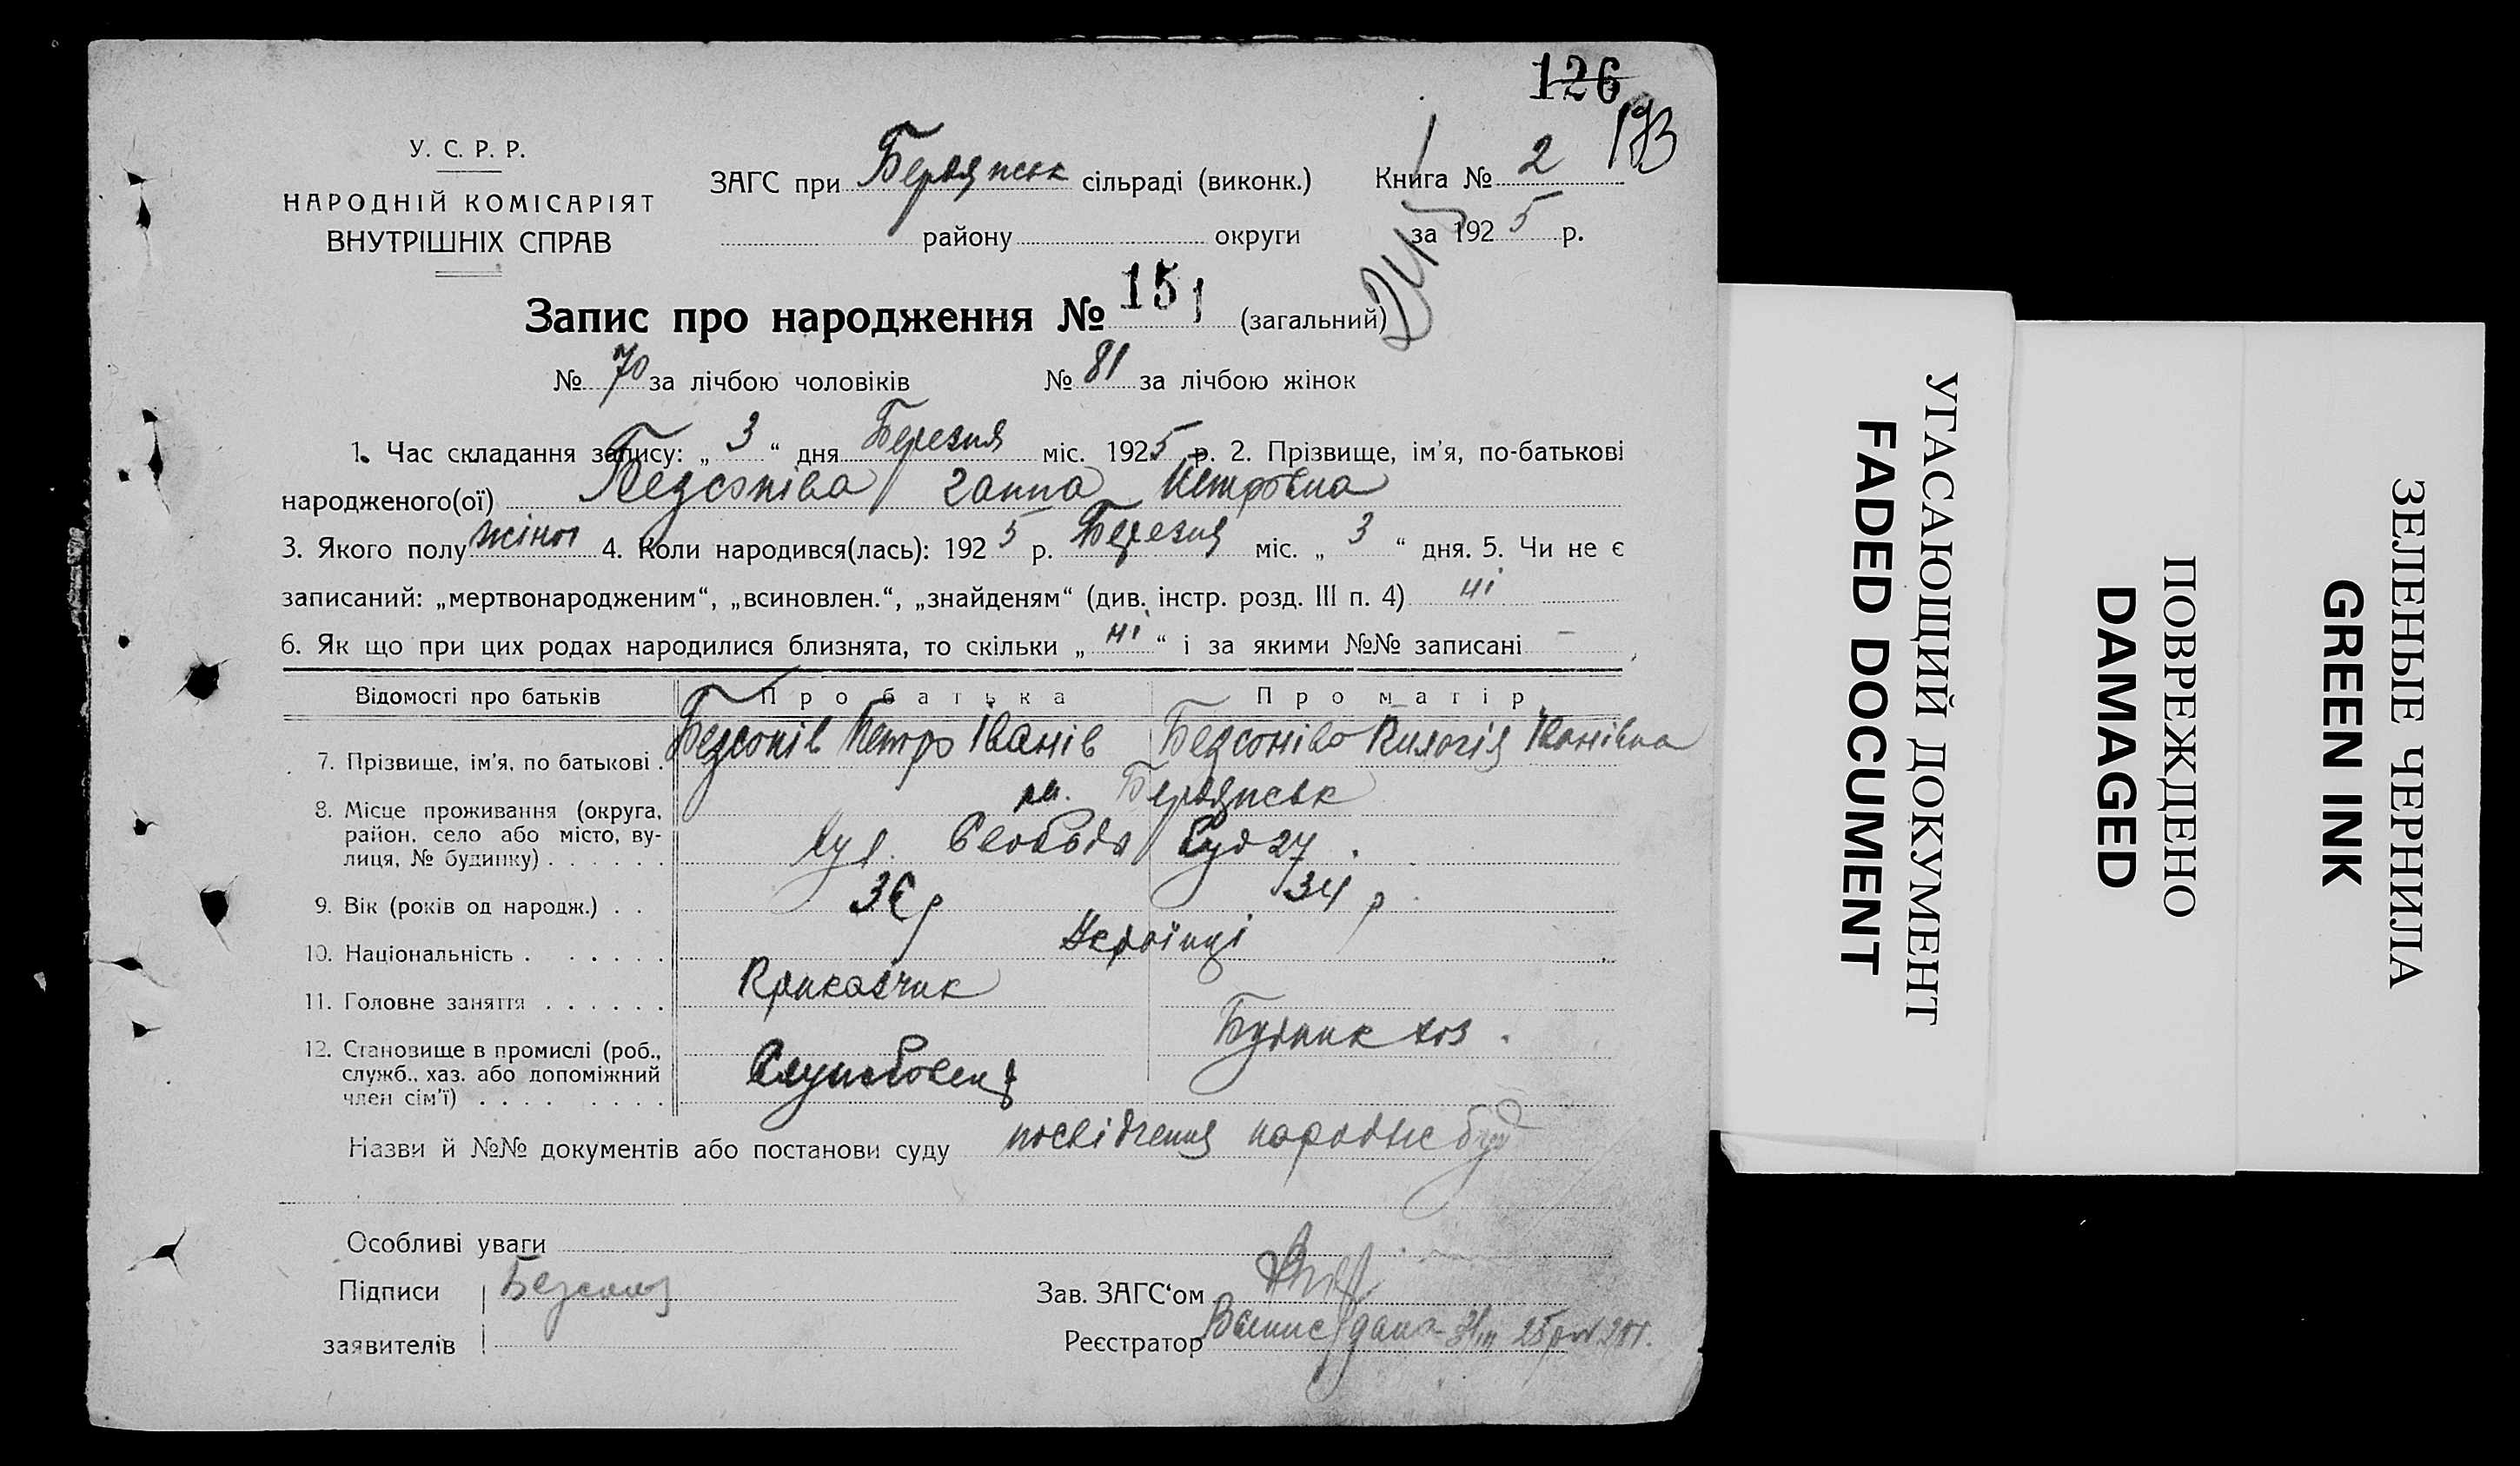 126
193
У. С. Р. Р.
НАРОДНІЙ КОМІСАРІЯТ
ВНУТРІШНІХ СПРАВ
ЗАГС при Бердянськ сільраді (виконк.) Книга № 2
району округи за 1925 р.
245
Запис про народження № 151 (загальний)
№ 70 за лічбою чоловіків № 81 за лічбою жінок
1. Час складання запису: „ 3 “ дня Березня міс. 1925 р. 2. Прізвище, ім'я, по-батькові
народженого(ої) Безсоніва Ганна Петровна
3. Якого полу жіноч 4. Коли народився(лась): 1925 р. Березня міс. „ 3 “ дня. 5. Чи не є
записаний: „мертвонародженим“, „всиновлен.“, „знайденям“ (див. інстр. розд. III п. 4) ні
6. Як що при цих родах народилися близнята, то скільки „ ні “ і за якими №№ записані –
Відомості про батьків Про батька Про матір
7. Прізвище, ім'я, по батькові . Безсонів Петро Іванів Безсоніва Іванівна
8. Місце проживання (округа, м. Бердянськ
район, село або місто, ву-
лиця, № будинку) . . . . . . вул. Свободи буд 27.
9. Вік (років од народж.) . . 36 р 34 р.
10. Національність . . . . . . Українці
11. Головне заняття . . . . . . Приказчик
12. Становище в промислі (роб., Будник хоз.
служб., хаз. або допоміжний Службовець
член сім'ї) . . . . . . . .
Назви й №№ документів або постанови суду посвідчення народже
Особливі уваги
Підписи Безсонів Зав. ЗАГС‘ом
заявителів Реєстратор
УГАСАЮЩИЙ ДОКУМЕНТ
FADED DOCUMENT
ПОВРЕЖДЕНО
DAMAGED
ЗЕЛЕНЫЕ ЧЕРНИЛА
GREEN INK